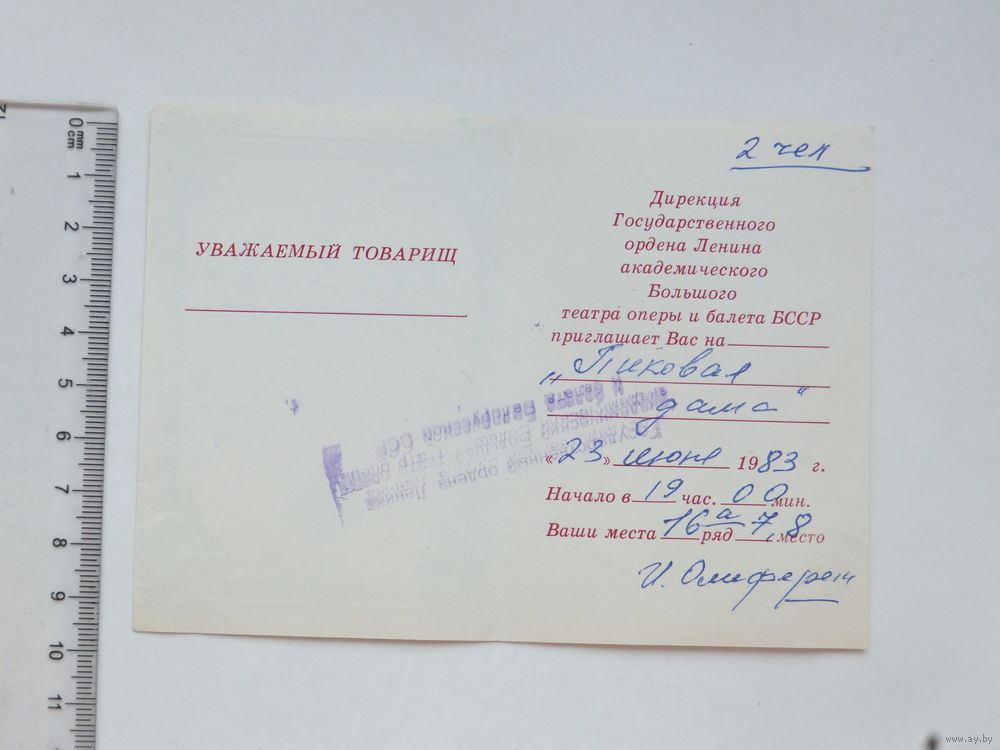 УВАЖАЕМЫЙ ТОВАРИЩ
2 чел
Дирекция
Государственного
ордена Ленина
академического
Большого
театра оперы и балета БССР
приглашает Вас на
„Пиковая
дама“
«23» июня 1983 г.
Начало в 19 час. 00 мин.
Ваши места 16а ряд 7,8 место
Государственный ордена Ленина
и балета Белорусской ССР
0 mm
cm
1
2
3
4
5
6
7
8
9
10
11
www.ay.by